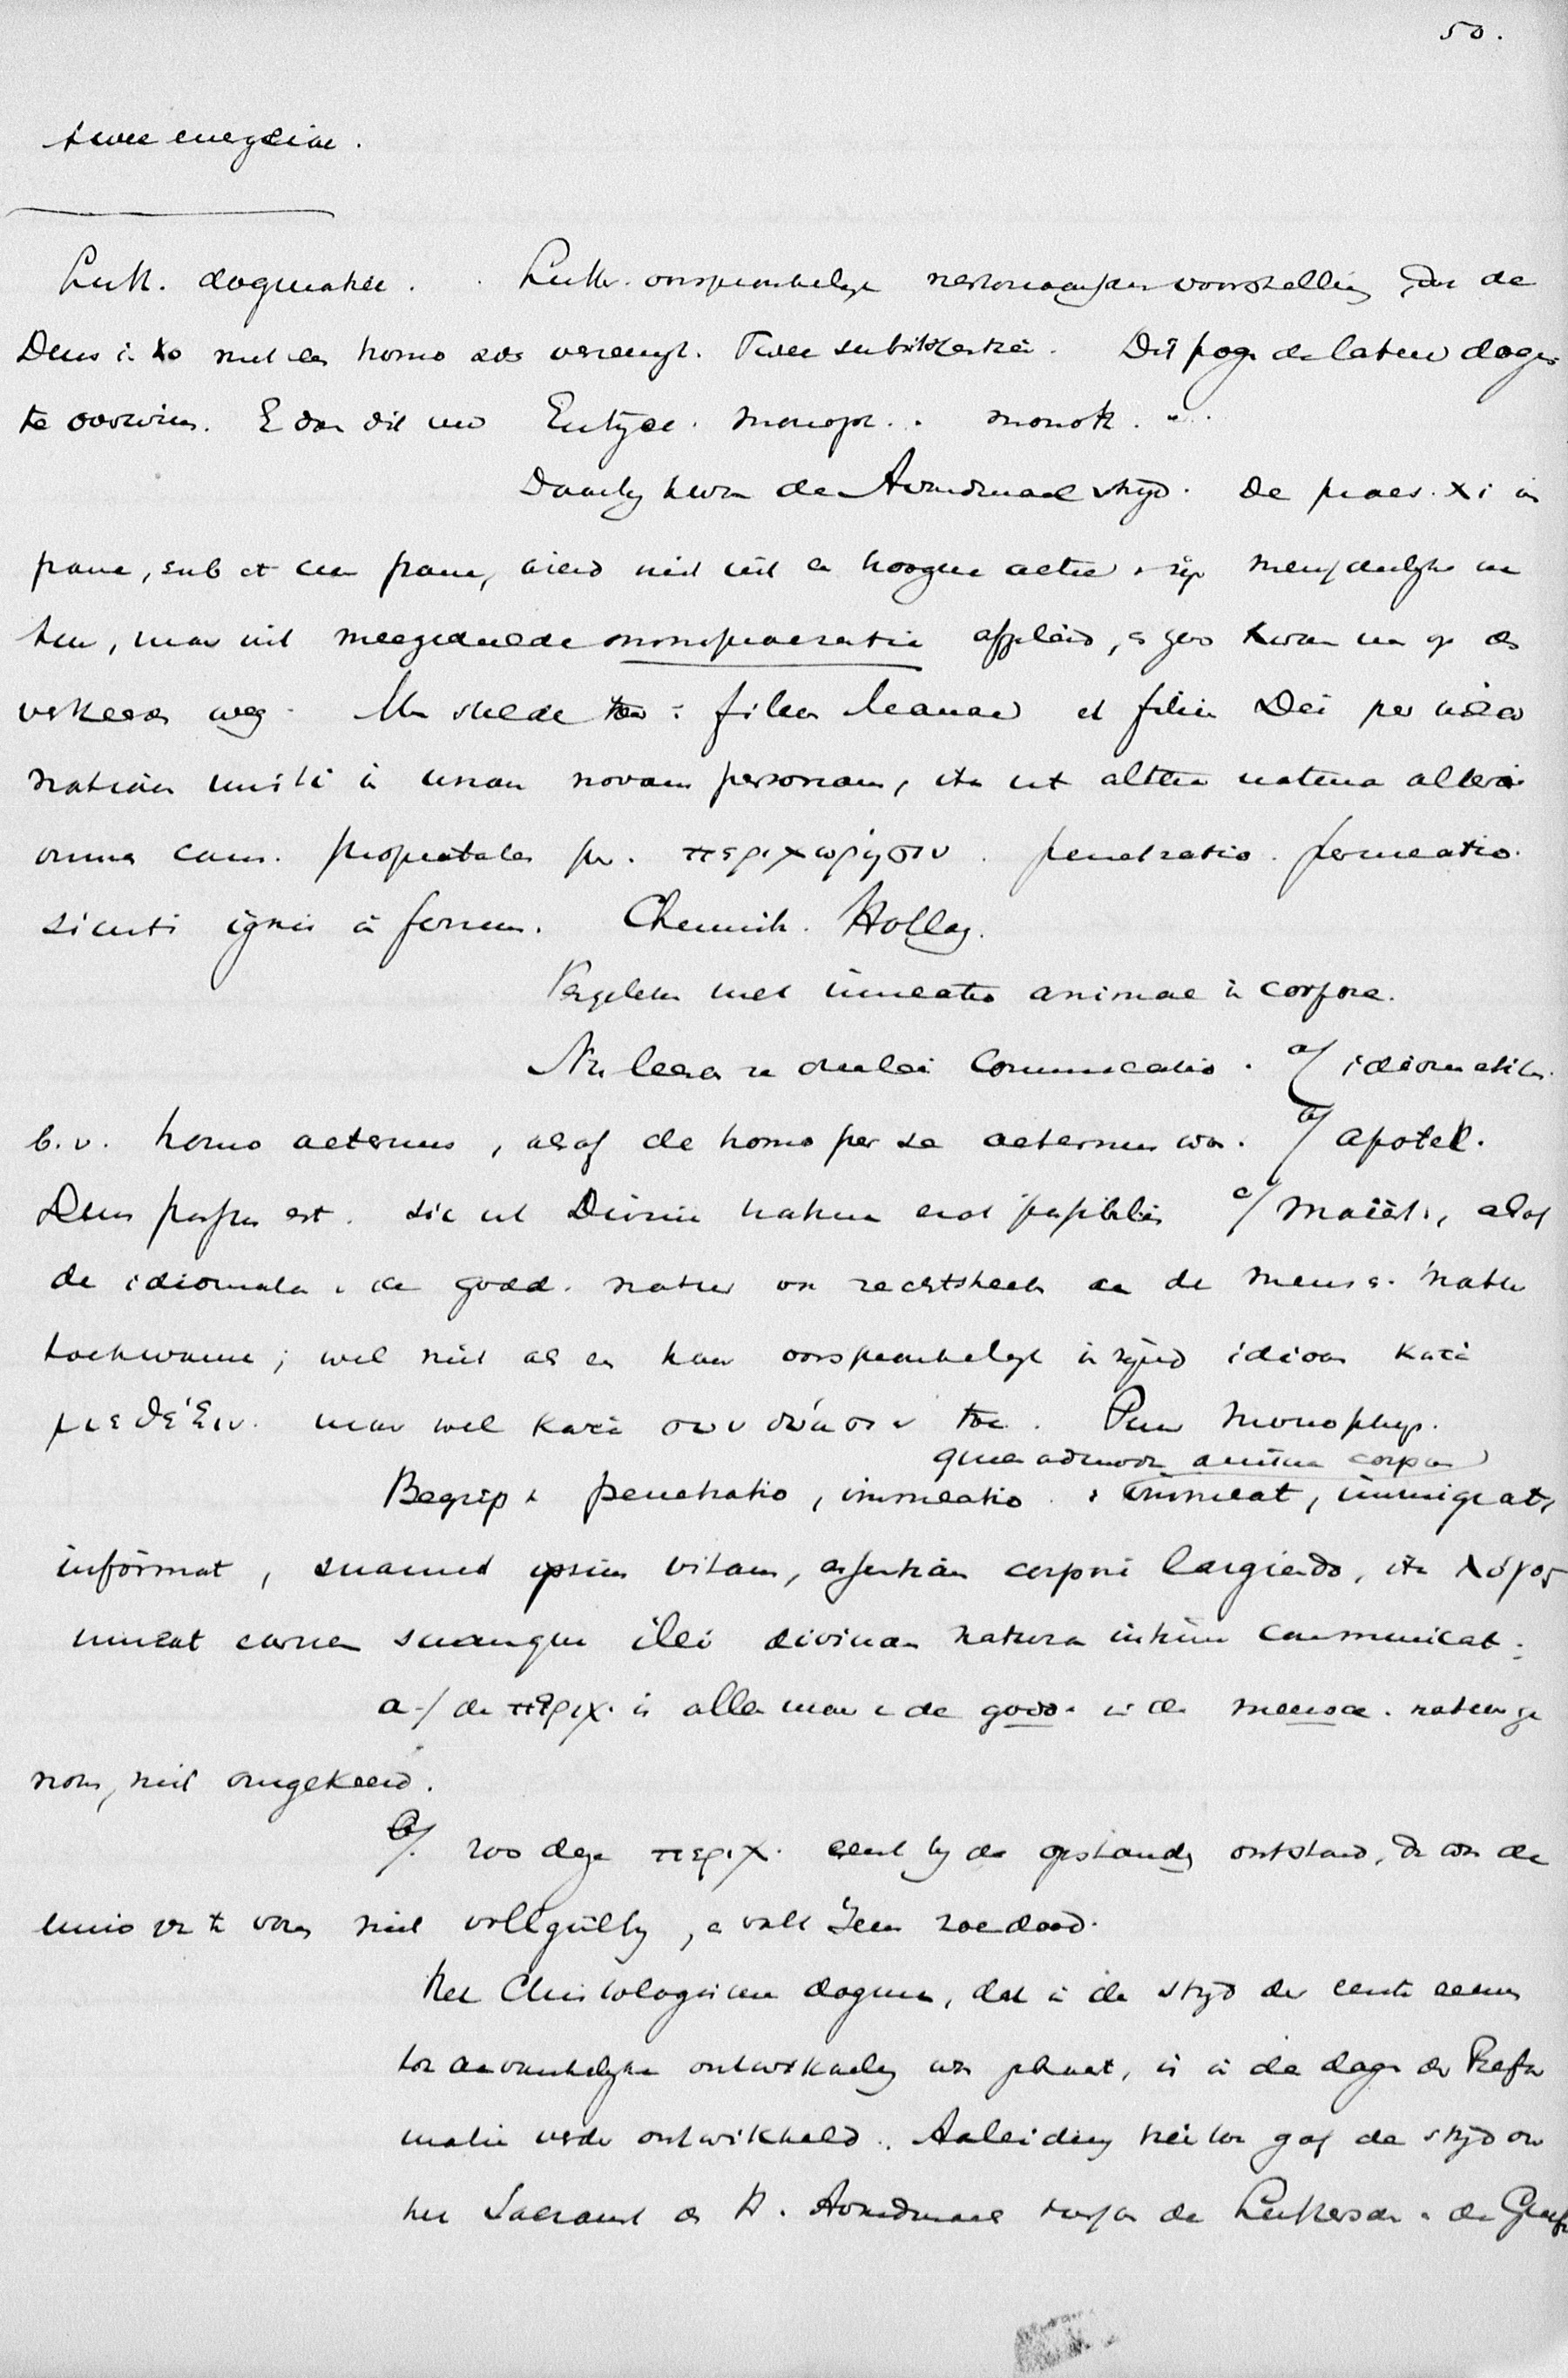 50.
twee energeiae.
Luth. dogmatiek. Luth. oorspronkelyk nestoriaansche voorstelling, dat de
Deus in Xo met een homo was vereenigd. Twee substantiën. Dit poogden de latere dogm.
te overwinnen. En dan dit uit Eutych. monoph. . monoth. "
Daarby kwam de Avondmaalstryd. De praes. Xi in
pane, sub et cum pane, werd niet uit een hoogere actie v. zyn menschelyke natuur
, maar uit meegedeelde omnipraesentia afgeleid, en zoo kwam men op den
verkeerden weg. Men stelde toen: filium Mariae et filium Dei per
naturam uniti in unam novam personam, ita ut altera natura alteri
omnes comm. proprietates per περιχώρησιν. penetratio. permeatio.
sicuti ignis in ferrum. Chemnitz. Hollaz.
Vergeleken met immeatio animae in corpore.
Nu leeren ze drieërlei Communicatio. a/ idiomatica.
b.v. homo aeternus, alsof de homo per se aeternus was. b/ apotel.
Deus passus est. sic ut Divina natura erat passibilis c/ Maiest., alsof
de idiomata v. de godd. natuur ook rechtstreeks aan de mensch. natuur
toekwamen; wel niet als een haar oorspronkelyk inzynd idioom κατὰ
μεθέξιν. maar wel κατὰ συνδύασιν toe. Puur Monophys.
quemadmodum anima corpus
Begrip v. penetratio, immeatio. : immeat, immigrat,
informat, suamet ipsius vitam, essentiam corpori largiendo, ita λόγος
immeat carnem suamque illi divinam naturam intime communicat.
a/ de περιχ. is alleen maar v. de godd. in de mensch. natuur ge
nomen, niet omgekeerd.
b/. zoo deze περιχ. eerst by de opstanding ontstaand, dan was de
unio vr te voren niet vollgültig, en valt Jezus zoendood.
Het Christologische dogma, dat in de stryd der eerste eeuwen
tot aanvankelyke ontwikkeling was gebracht, is in de dagen der Refor
matie verder ontwikkeld. Aanleiding hiertoe gaf de stryd over
het Sacrament des H. Avondmaals tusschen de Lutherschen en de Geref.